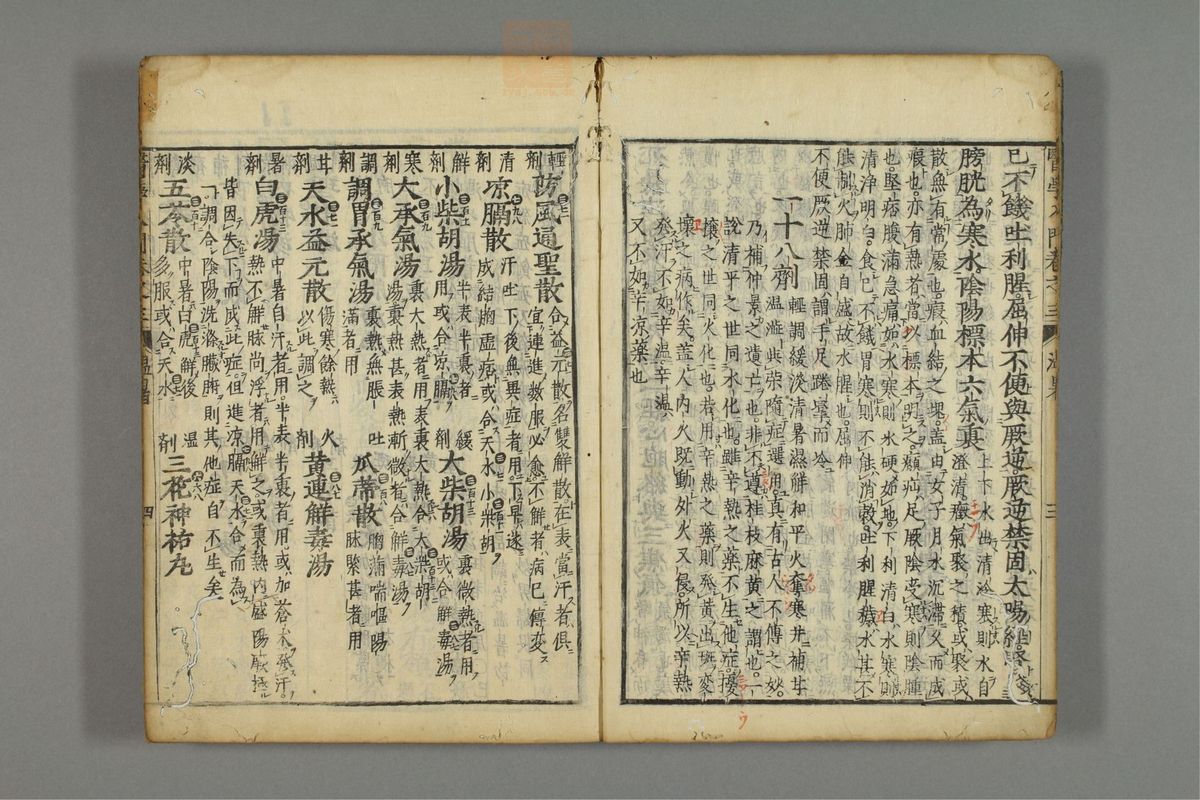 已不饑吐利腥屈伸不便與厥逆厥逆禁固太陽經
膀胱為寒水陰陽標本六氣真
上下水出清冷寒則水自澄清癥氣聚之積或聚或
散無有常處也瘕血結之塊蓋由女子月水沉滯久而成
瘕也亦有熱者當以標本明之㿗疝足厥陰受寒則陰腫
也堅痞腹滿急痛如水寒則氷硬如地下利清白水寒則
清浄明白食已不饑胃寒則不能消穀吐利腥穢水其不
能制火肺金自盛故水腥也屈伸
不便厥逆禁固謂手足踡攣而冷
一十八劑
輕調緩淡清暑濕解和平火奪寒并補甘
温澁些荣隨症選用真有古人不傳之妙
乃補仲景之遺亡也非不遵桂枝麻黄之謂也一
說清平之世同水化也雖辛熱之藥不生他症擾
攘之世同火化也若用辛熱之藥則發黄出斑變
壞之病作矣蓋人内火既動外火又侵所以辛熱
發汗不如辛温辛温
又不如辛凉藥也
輕劑 防風通聖散
合益元散名雙解散在表當汗者俱
宜連進數服必愈不解者病已傳変
清劑 凉膈散
汗吐下後無異症者用下早迷
成結胸虚痞或合天水小柴胡
解劑 小柴胡湯
半表半裏者
用或合凉膈
緩劑 大柴胡湯
裏微熱者用
或合解毒湯
寒劑 大承氣湯
裏大熱者用表裏大熱合大柴胡
湯裏熱甚表熱漸微者合解毒湯
調劑 調胃承氣湯
裏熱無脹
滿者用
吐 瓜蒂散
胸滿喘嘔陽
脉緊甚者用
甘劑 天水益元散
傷寒餘熱
以此調之
火劑 黄連解毒湯
暑劑 白虎湯
中暑自汗者用半表半裏者用或加蒼朮發汗
熱不解脉尚浮者用解之或裏熱内盛陽厥極
皆因失下而成此症但進凉膈天水合而為
一調合陰陽洗滌臓腑則其他症自不生矣
淡劑 五苓散
中暑白虎解後
多服或合天水
湿劑 三花神祐丸
四